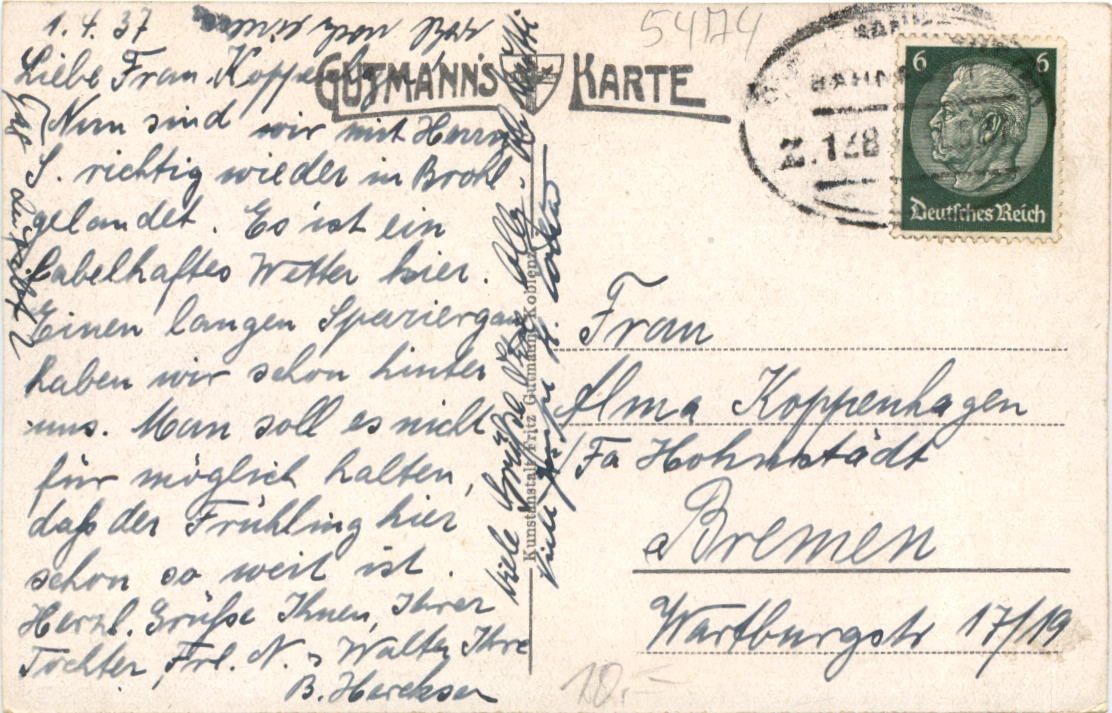 1.4.37
Liebe Frau Koppenhagen!
Nun sind wir mit Herrn
S. richtig wieder in Brohl
gelandet. Es ist ein
fabelhaftes Wetter hier.
Einen langen Spaziergang
haben wir schon hinter
uns. Man soll es nicht
für möglich halten,
daß der Frühling hier
schon so weit ist.
Herzl. Grüße Ihnen, Ihrer
Tochter, Frl. N. u Walter Ihre
B.
Viele Grüße
Viele
GUTMANN'S KARTE
Kunstanstalt Fritz Gutmann, Koblenz
54174
BAHNPOST
Z. 138
6 6
Deutsches Reich
Frau
Alma Koppenhagen
Fa Hohnstädt
Bremen
Wartburgstr 17/19
10.-